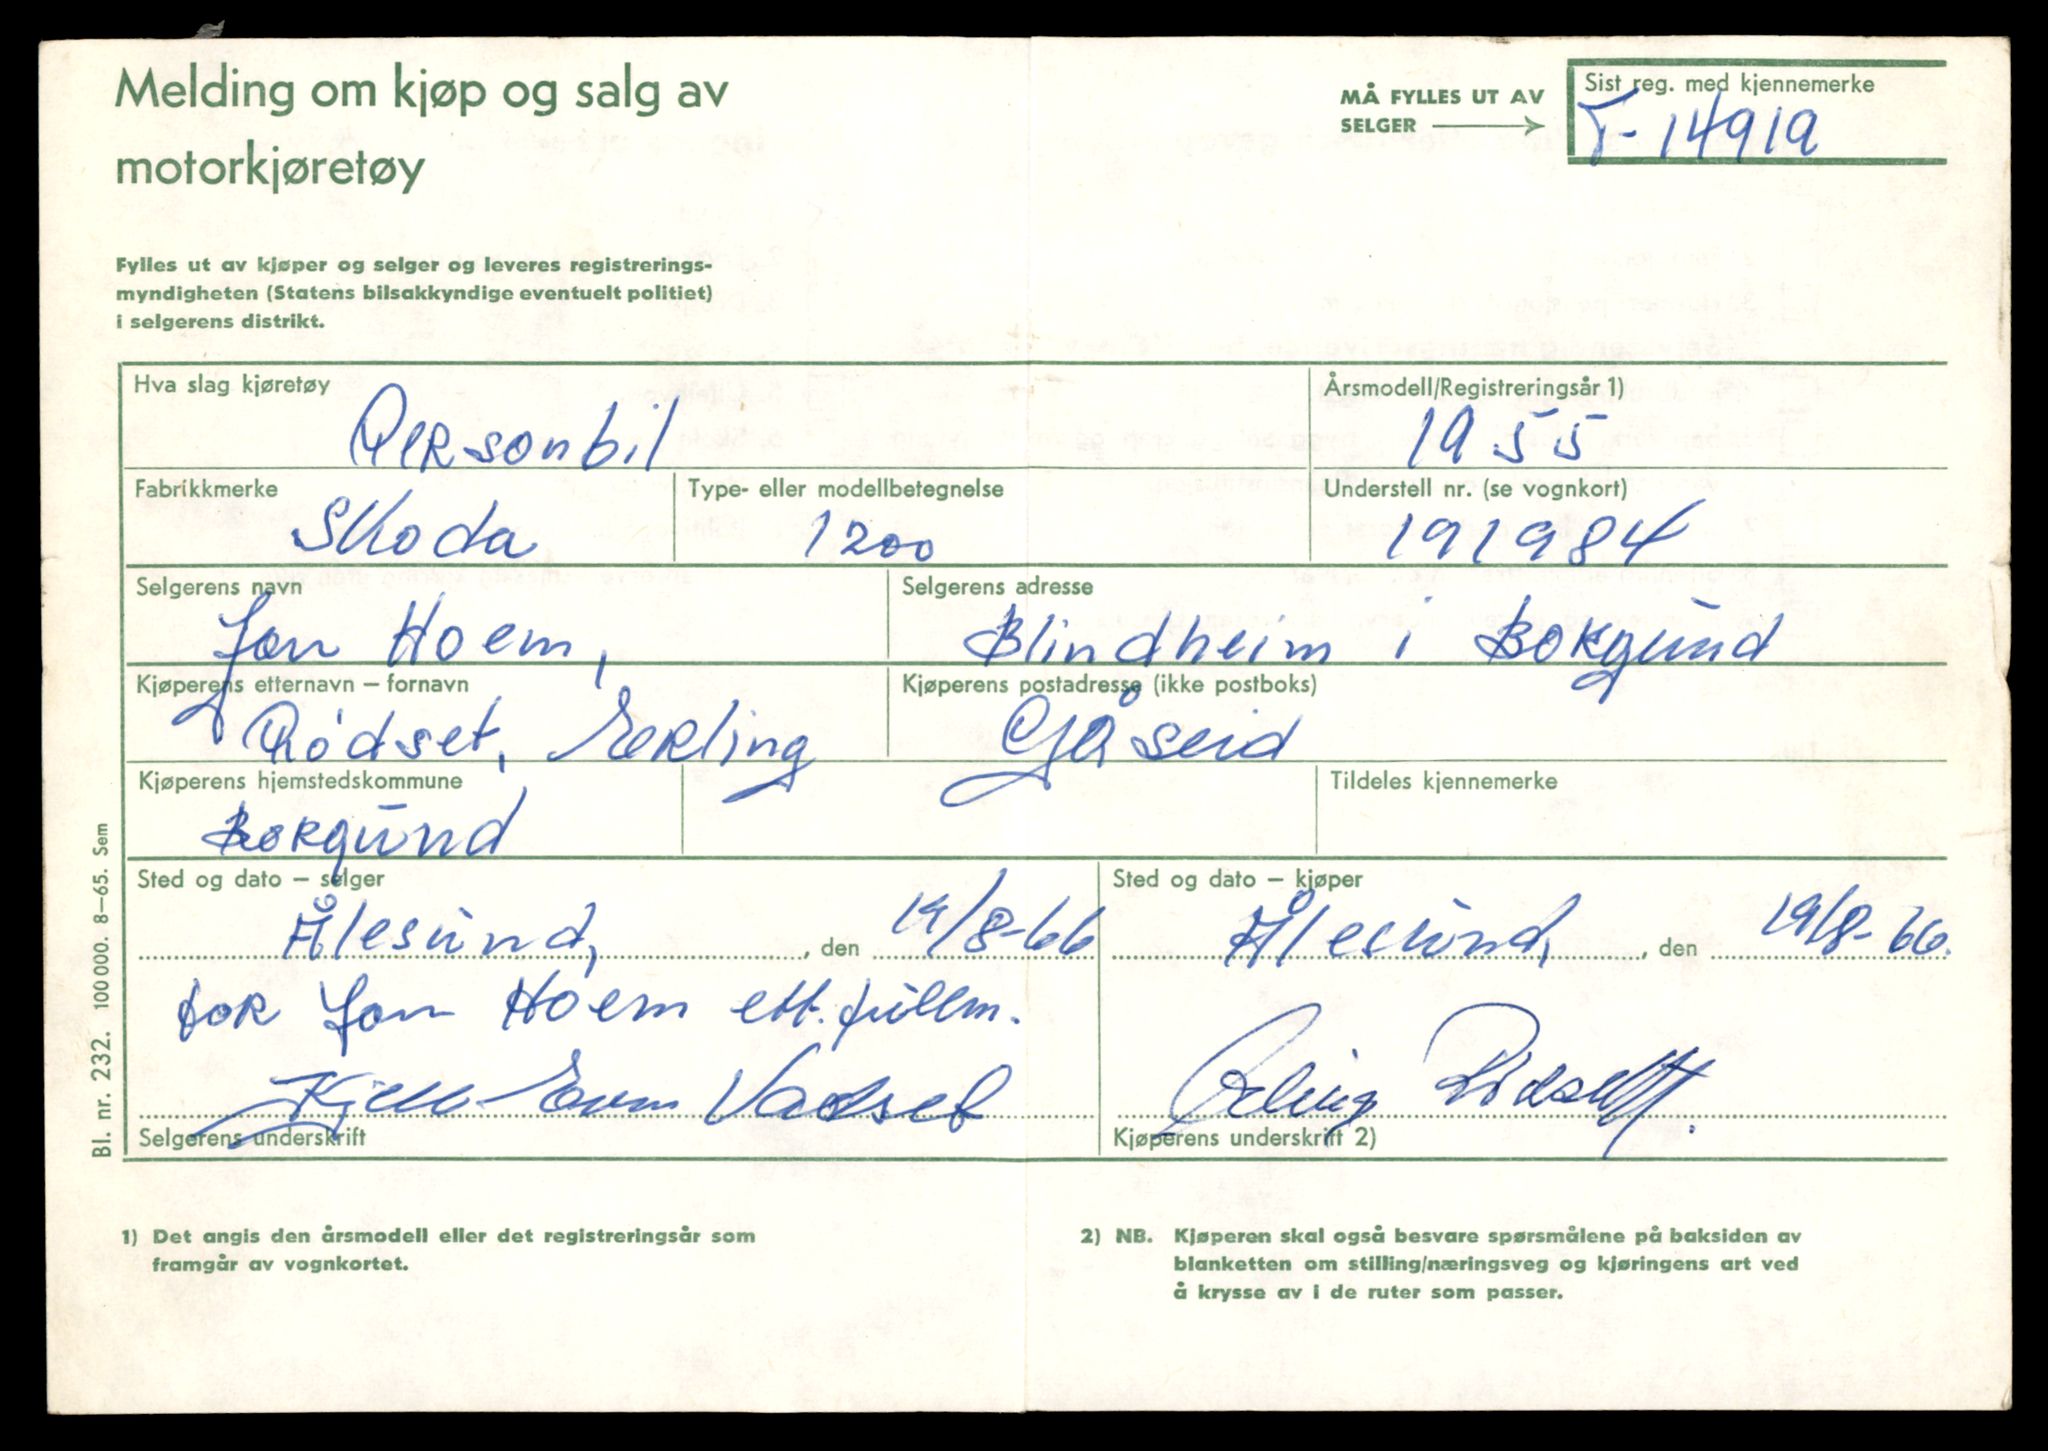 Melding om kjøp og salg av
motorkjøretøy
MÅ FYLLES UT AV
SELGER
Sist reg. med kjennemerke
T- 14919
Fylles ut av kjøper og selger og leveres registrerings-
myndigheten (Statens bilsakkyndige eventuelt politiet)
i selgerens distrikt.
Hva slag kjøretøy
Personbil
Årsmodell/Registreringsår 1)
1955
Fabrikkmerke
Skoda
Type- eller modellbetegnelse
1200
Understell nr. (se vognkort)
191984
Selgerens navn
Jon Hoem,
Selgerens adresse
Blindheim i Borgund
Kjøperens etternavn – fornavn
Rødset, Erling
Kjøperens postadresse (ikke postboks)
Gåseid
Kjøperens hjemstedskommune
Borgund
Tildeles kjennemerke
Sted og dato – selger
Ålesund, , den 19/8-66
Sted og dato – kjøper
Ålesund, , den 19/8-66.
for Jon Hoem ett. fullm.
Kjell Vadset
Selgerens underskrift
Erling Rødset
Kjøperens underskrift 2)
Bl. nr. 232. 100 000. 8–65. Sem
1) Det angis den årsmodell eller det registreringsår som
framgår av vognkortet.
2) NB. Kjøperen skal også besvare spørsmålene på baksiden av
blanketten om stilling/næringsveg og kjøringens art ved
å krysse av i de ruter som passer.